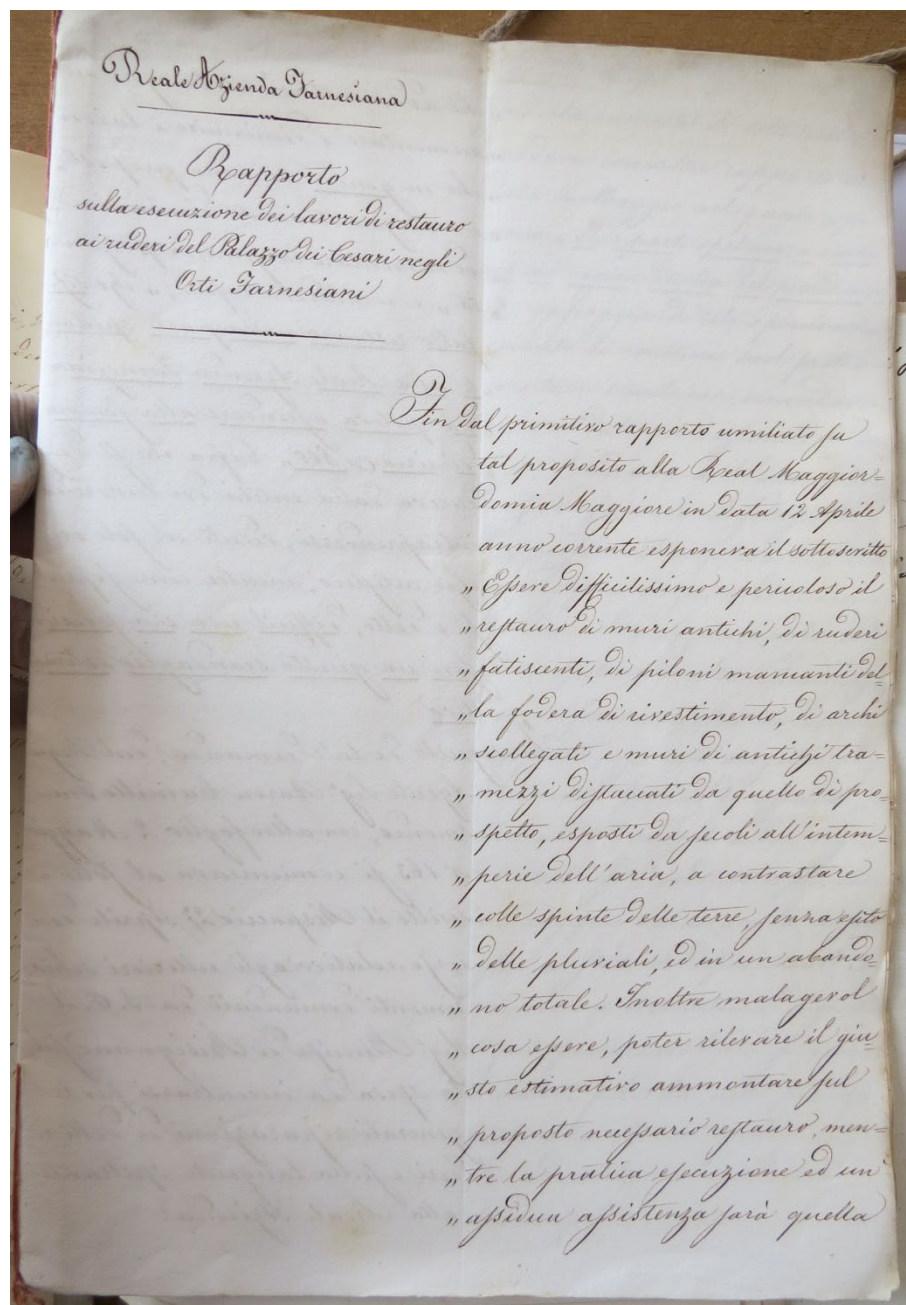 Reale Azienda Farnesiana
Rapporto
sulla esecuzione dei lavori di restauro
ai ruderi del Palazzo dei Cesari negli
Orti Farnesiani
Fin dal primitivo rapporto umiliato su
tal proposito alla Real Maggior=
domia Maggiore in data 12 Aprile
anno corrente esponeva il sottoscritto
" Essere difficilissimo e pericoloso il
" restauro di muri antichi, di ruderi
" fatiscenti, di piloni mancanti del=
" la fodera di rivestimento, di archi
" scollegati e muri di antichi tra=
" mezzi distaccati da quello di pro=
" spetto, esposti da secoli all'intem=
" perie dell'aria, a contrastare
" colle spinte delle terre, senza esito
" delle pluviali, ed in un abando=
" no totale. Inoltre malagevol
" cosa essere, poter rilevare il giu=
" sto estimativo ammontare sul
" proposto necessario restauro, men=
" tre la pratica esecuzione ed un'
" assidua assistenza sarà quella